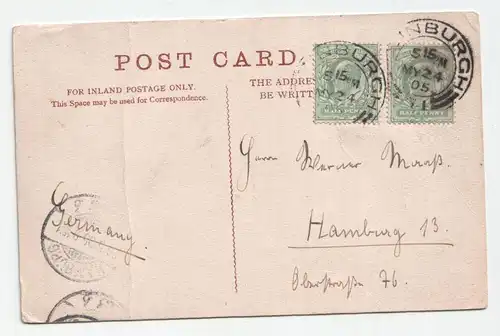 POST CARD.
FOR INLAND POSTAGE ONLY.
This Space may be used for Correspondence.
THE ADDRES
BE WRITT
INBURGH
5 15 M
MY 24
05
HALF PENNY
Herrn Werner Maaß
Hamburg 13.
Oberstraße 76.
Germany.